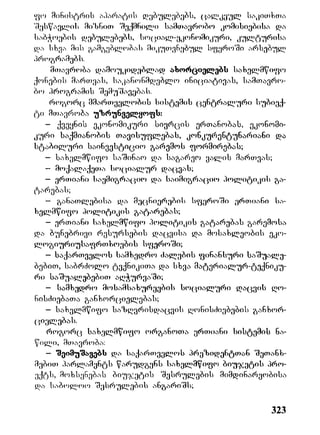 ფო მინისტრის აპარატის დებულებებს, ცალკეულ საკითხთა
შესწავლის მიზნით შექმნილი სამთავრობო კომისიებისა და
საბჭოების დებულებებს, სოციალ-ეკონომიკური, კულტურისა
და სხვა მის გამგებლობას მიკუთვნებულ სფეროში არსებულ
პროგრამებს.
მთავრობა დამოუკიდებლად ახორციელებს სახელმწიფო
ქონების მართვას, საკანონმდებლო ინიციატივას, სამთავრო-
ბო პროგრამის შემუშავებას.
როგორც მმართველობის სისტემის ცენტრალური სუბიექ-
ტი მთავრობა უზრუნველყოფს:
– ქვეყნის ეკონომიკური სივრცის ერთანობას, ეკონომი-
კური საქმიანობის თავისუფლებას, კონკურენტუნარიანი და
სტაბილური საინვესტიციო გარემოს ფორმირებას;
– სახელმწიფო საშინაო და საგარეო ვალის მართვას;
– მოქალაქეთა სოციალურ დაცვას;
– ერთიანი საემიგრაციო და საიმიგრაციო პოლიტიკის გა-
ტარებას;
– განათლებისა და მეცნიერების სფეროში ერთიანი სა-
ხელმწიფო პოლიტიკის გატარებას;
– ერთიანი სახელმწიფო პოლიტიკის გატარებას გარემოსა
და ბუნებრივი რესურსების დაცვისა და მოსახლეობის ეკო-
ლოგიურიუსაფრთხოების სფეროში;
– საქართველოს სამხედრო ძალების ფინანსური საშუალე-
ბებით, საბრძოლო ტექნიკითა და სხვა მატერიალურ-ტექნიკუ-
რი საშუალებებით აღჭურვაში;
– სამხედრო მოსამსახურეების სოციალური დაცვის ღო-
ნისძიებათა განხორციელებას;
– სახელმწიფო საზღვრისდაცვის ღონისძიებების განხორ-
ციელებას.
როგორც სახელმწიფო ორგანოთა ერთიანი სისტემის ნა-
წილი, მთავრობა:
– შეიმუშავებს და საქართველოს პრეზიდენტთან შეთანხ-
მებით პარლამენტს წარუდგენს სახელმწიფო ბიუჯეტის პრო-
ექტს, მოხსენებას ბიუჯეტის შესრულების მიმდინარეობისა
და საბოლოო შესრულების ანგარიშს;
323